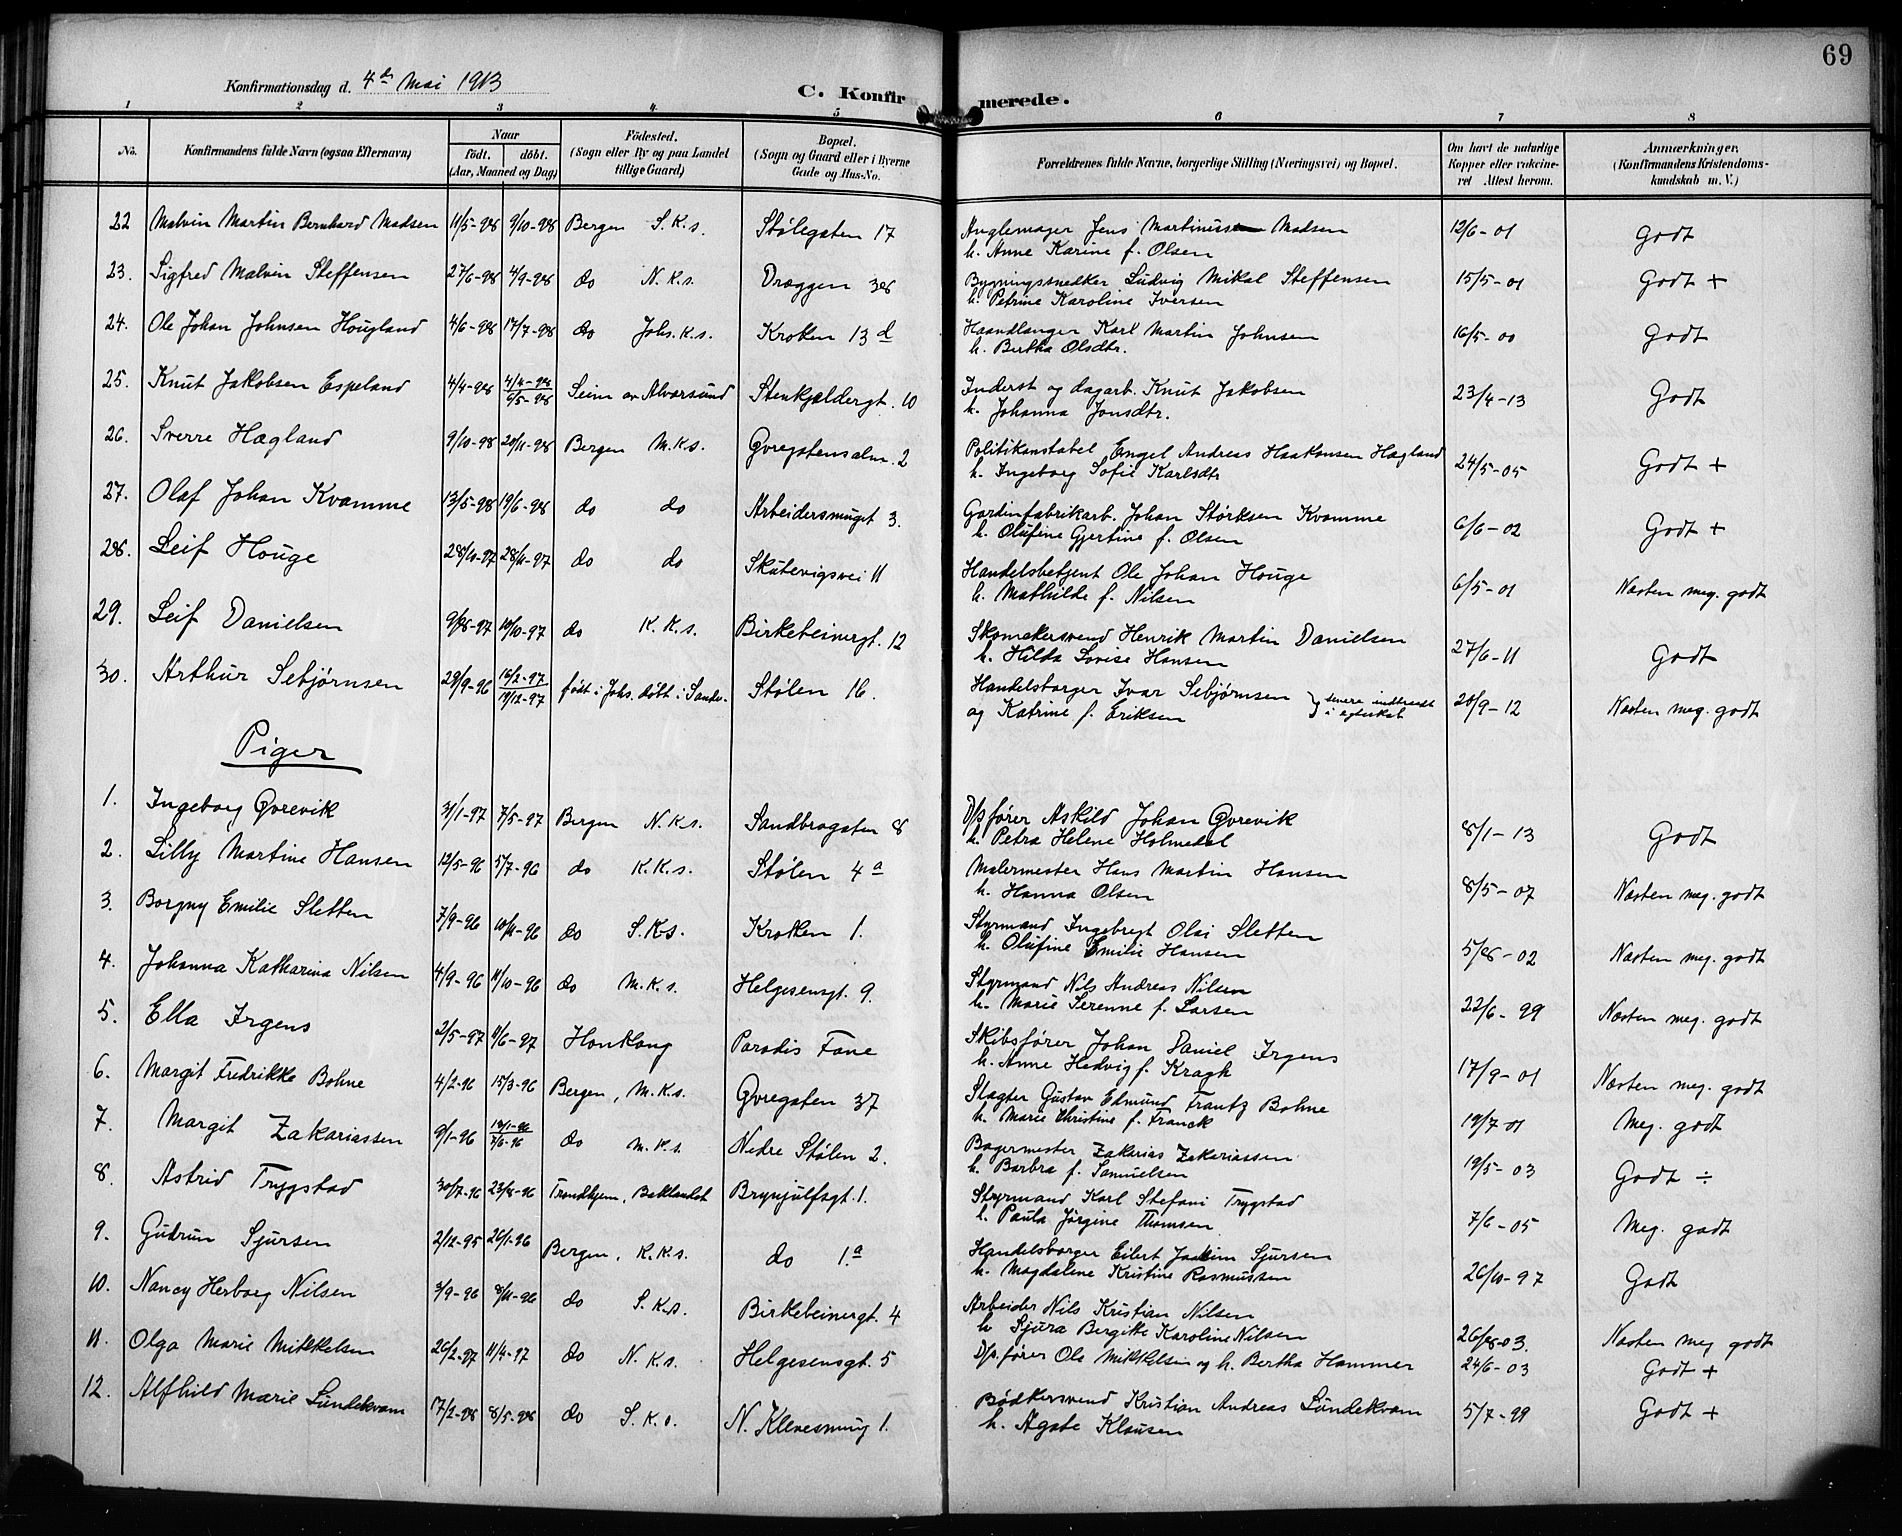 69
Konfirmationsdag d. 4de Mai 1913
C. Konfirmerede.
1 2 3 4 5 6 7 8
No. Konfirmandens fulde Navn (ogsaa Efternavn) Naar født. døbt. (Aar, Maaned og Dag) Fødested. (Sogn eller By og paa Landet tillige Gaard) Bopæl. (Sogn og Gaard eller i Byerne Gade og Hus-No. Forældrenes fulde Navne, borgerlige Stilling (Næringsvei) og Bopæl. Om havt de naturlige Kopper eller vakcineret Attest herom. Anmærkninger. (Konfirmandens Kristendomskundskab m. V.)
22 Malvin Martin Bernhard Madsen 11/5-98 9/10-98 Bergen S.K.s. Stølegaten 17 Anglemager Jens Martinius Madsen 12/6-01 Godt
h. Anne Karine f. Olsen
23. Sigfred Malvin Steffensen 27/6-98 4/9-98 do N.K.s. Dræggen 38 Bygningssnedker Ludvig Mikal Steffensen 15/5-01 Godt +
h. Petrine Karoline Iversen
24. Ole Johan Johnsen Hougland 4/6-98 17/7-98 do Johs.K.s. Kroken 13 d Haandlanger Karl Martin Johnsen 16/5-00 Godt
h. Bertha Olsdtr.
25. Knut Jakobsen Espeland 4/4-98 4/4-98 6/5-98 Seim av Alversund Stenkjældergt. 10 Inderst og dagarb. Knut Jakobsen 23/4-13 Godt
h. Johanna Jonsdtr.
26. Sverre Hægland 9/10-98 20/11-98 Bergen M.K.s. Øvregatensalm. 2 Politikonstabel Engel Andreas Haakonsen Hægland 24/5-05 Godt +
h. Ingeborg Sofie Karlsdtr
27. Olaf Johan Kvamme 13/5-98 19/6-98 do do Arbeidersmuget 3. Gardinfabrikarb. Johan Størksen Kvamme 6/6-02 Godt +
h. Olufine Gjertine f. Olsen
28. Leif Houge 28/10-97 28/11-97 do do Skutevigsvei 11 Handelsbetjent Ole Johan Houge 6/5-01 Næsten meg. godt
h. Mathilde f. Nilsen
29. Leif Danielsen 9/8-97 10/10-97 do K.K.s. Birkebeinergt. 12 Skomakersvend Henrik Martin Danielsen 27/6-11 Godt
h. Hilda Lovise Hansen
30. Arthur Sebjørnsen 29/9-96 16/2-97 19/12-97 født i Johs. døbt i Sandv. Stølen 16. Handelsborger Ivar Sebjørnsen } senere indtraadt 20/9-12 Næsten meg. godt
og Katrine f. Eriksen i egteskab
Piger
1. Ingeborg Øvrevik 31/1-97 7/5-97 Bergen N.K.s. Sandbrogaten 8 D/s fører Askild Johan Øvrevik 8/1-13 Godt
h. Petra Helene Holmedal
2. Lilly Martine Hansen 12/5-96 5/7-96 do K.K.s. Stølen 4 a Malermester Hans Martin Hansen 8/5-07 Næsten meg. godt
h. Hanna Olsen
3. Borgny Emilie Sletten 7/9-96 10/11-96 do S.K.s. Kroken 1. Styrmand Ingebregt Olai Sletten 5/8-02 Næsten meg. godt
h. Olufine Emilie Hansen
4. Johanna Katharina Nilsen 4/9-96 11/10-96 do M.K.s. Helgesensgt. 9. Styrmand Nils Andreas Nilsen 22/6-99 Næsten meg. godt
h. Marie Serenne f. Larsen
5. Ella Irgens 2/5-97 11/6-97 Honkong Paradis Fane Skibsfører Johan Daniel Irgens 17/9-01 Næsten meg. godt
h. Anne Hedvig f. Kragh
6. Margit Fredrikke Bohne 4/2-96 15/3-96 Bergen, M.K.s. Øvregaten 37 Slagter Gustav Edmund Frantz Bohne 19/7-01 Meg. godt
h. Marie Christine f. Franck
7. Margit Zakariassen 9/1-96 12/1-96 7/6-96 do M.K.s. Nedre Stølen 2. Bagermester Zakarias Zakariassen 19/5-03 Godt ÷
h. Barbra f. Samuelsen
8. Astrid Trygstad 30/7-96 23/8-96 Trondhjem, Baklandet Brynjulfsgt. 1. Styrmand Karl Stefani Trygstad 7/6-05 Meg. godt
h. Paula Jørgine Thomsen
9. Gudrun Sjursen 2/12-95 26/1-96 Bergen, K.K.s. do 1.a Handelsborger Eilert Joakim Sjursen 26/10-97 Godt
h. Magdalene Kristine Rasmussen
10. Nancy Herborg Nilsen 3/9-96 8/11-96 do S.K.s. Birkebeinergt. 4 Arbeider Nils Kristian Nilsen 26/8-03. Næsten meg godt
h. Sjura Bergitte Karoline Nilsen
11. Olga Marie Mikkelsen 26/2-97 11/4-97 do N.K.s. Helgesensgt. 5 D/s. fører Ole Mikkelsen og h. Bertha Hammer 24/6-03 Godt +
12. Alfhild Marie Lundekvam 17/2-98 8/5-98 do S.K.s. N. Klevesmug 1. Bødkersvend Kristian Andreas Lundekvam 5/7-99 Godt +
h. Agate Klausen